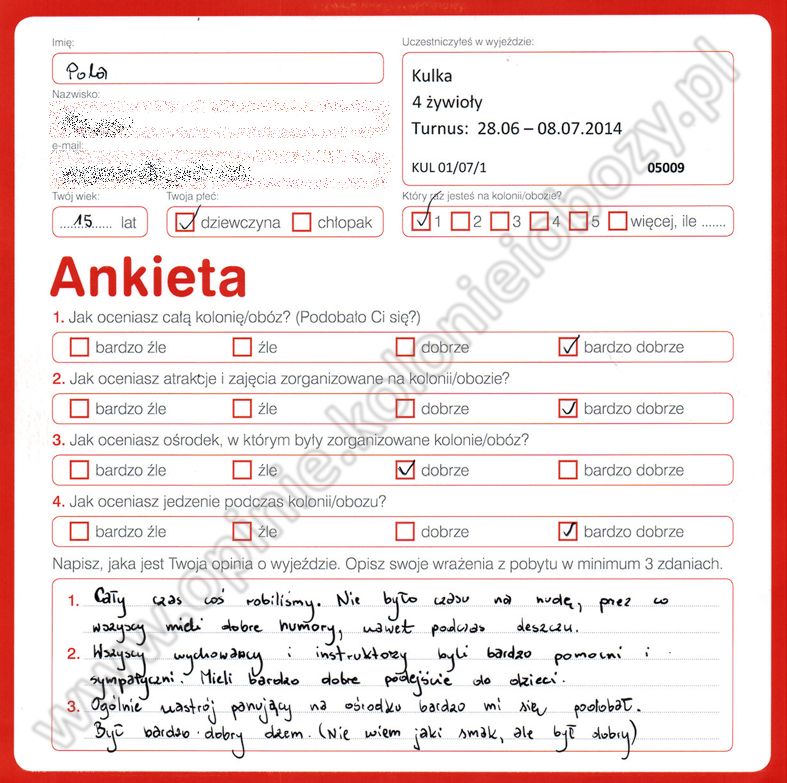 Imię:
Uczestniczyłeś w wyjeździe:
Pola
Kulka
4 żywioły
Turnus: 28.06 – 08.07.2014
KUL 01/07/1 05009
Nazwisko:
e-mail:
Twój wiek:
Twoja płeć:
Który raz jesteś na kolonii/obozie?
15 lat
dziewczyna chłopak
1 2 3 4 5 więcej, ile .......
Ankieta
1. Jak oceniasz całą kolonię/obóz? (Podobało Ci się?)
bardzo źle źle dobrze bardzo dobrze
2. Jak oceniasz atrakcje i zajęcia zorganizowane na kolonii/obozie?
bardzo źle źle dobrze bardzo dobrze
3. Jak oceniasz ośrodek, w którym były zorganizowane kolonie/obóz?
bardzo źle źle dobrze bardzo dobrze
4. Jak oceniasz jedzenie podczas kolonii/obozu?
bardzo źle źle dobrze bardzo dobrze
Napisz, jaka jest Twoja opinia o wyjeździe. Opisz swoje wrażenia z pobytu w minimum 3 zdaniach.
1. Cały czas coś robiliśmy. Nie było czasu na nudę, prez co
wszyscy mieli dobre humory, nawet podczas deszczu.
2. Wszyscy wychowawcy i instruktorzy byli bardzo pomocni i
sympatyczni. Mieli bardzo dobre podejście do dzieci.
3. Ogólnie nastrój panujący na ośrodku bardzo mi się podobał.
Był bardzo dobry dżem. (Nie wiem jaki smak, ale był dobry)
www.opinie.kolonieiobozy.pl